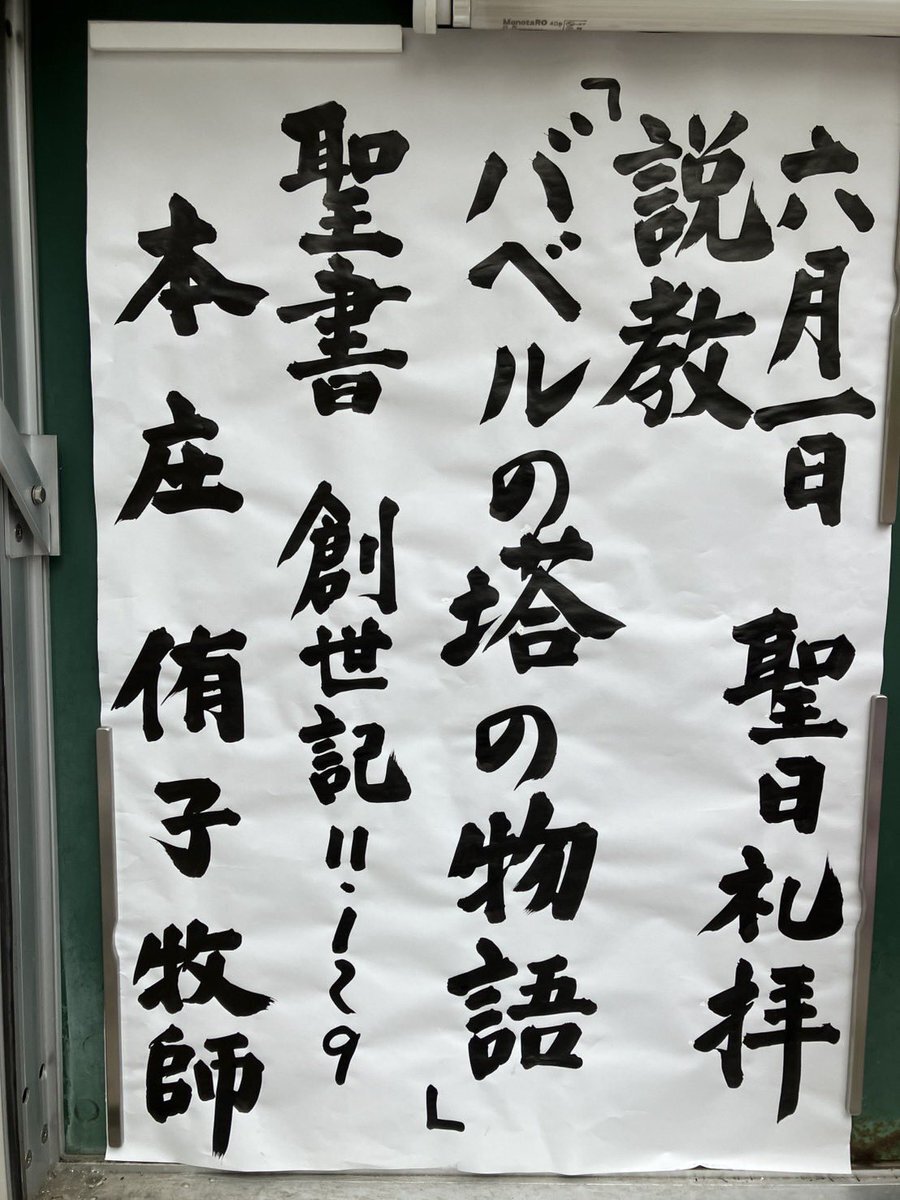 六月一日 聖日礼拝
説教
「バベルの塔の物語」
聖書 創世記 11・1〜9
本庄 侑子 牧師
MonotaRO